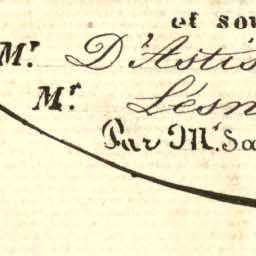 et sou
Mr. D'Astis
Mr. Lésn
Par Mr. Sa